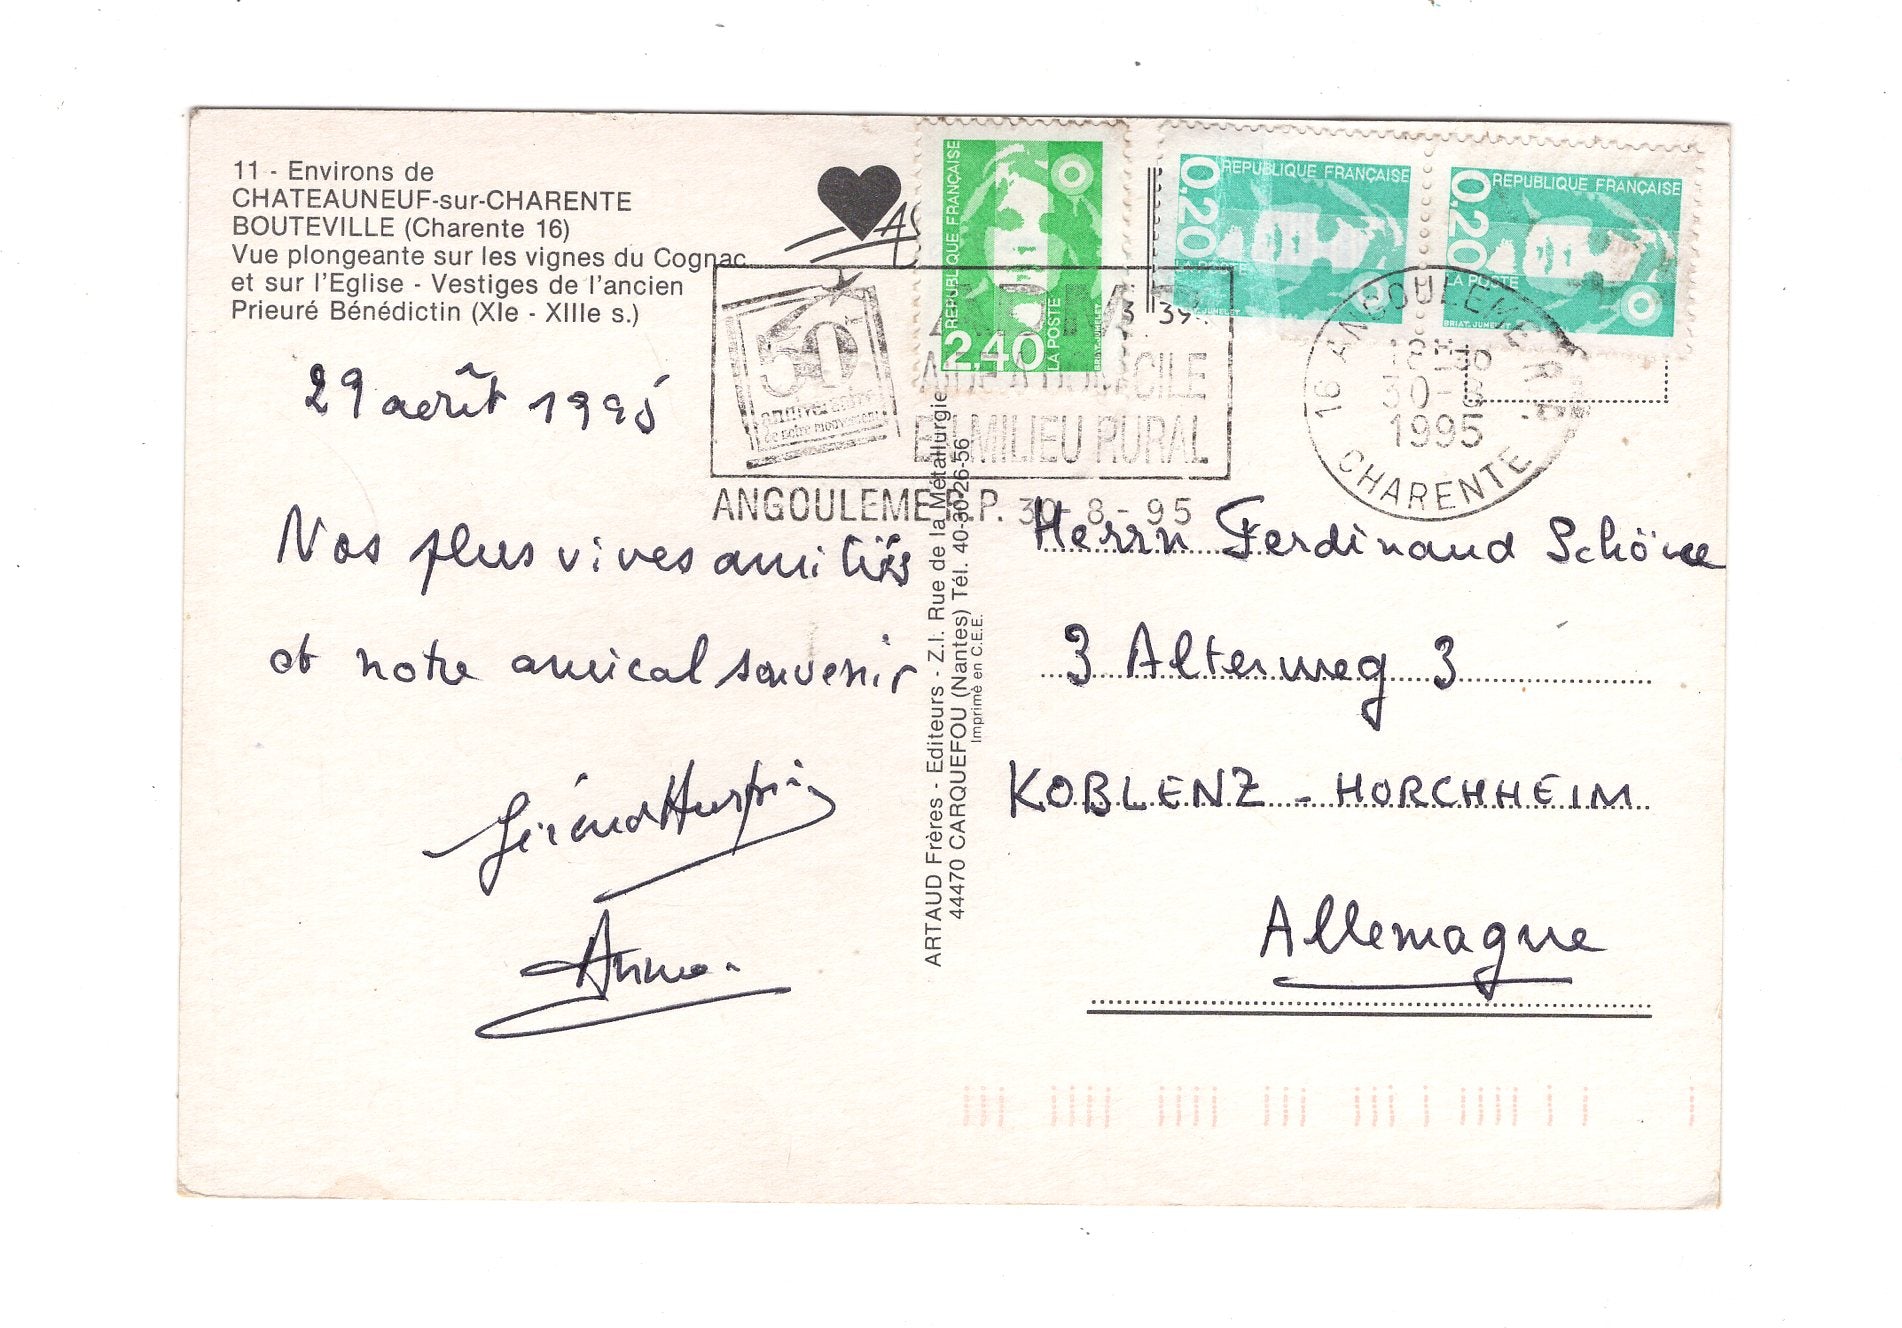 11 - Environs de
CHATEAUNEUF-sur-CHARENTE
BOUTEVILLE (Charente 16)
Vue plongeante sur les vignes du Cognac
et sur l'Eglise - Vestiges de l'ancien
Prieuré Bénédictin (XIe - XIIIe s.)
29 août 1995
Nos plus vives amitiés
et notre amical souvenir
Anne.
50
anniversaire
de notre mouvement
A DOMICILE
EN MILIEU RURAL
ANGOULEME R.P. 30-8-95
ARTAUD Frères - Editeurs - Z.I. Rue de la Métallurgie
44470 CARQUEFOU (Nantes) Tél. 40-30-26-56
Imprimé en C.E.E.
REPUBLIQUE FRANÇAISE
2,40
LA POSTE
BRIAT.JUMELET
3 39
REPUBLIQUE FRANÇAISE
0,20
LA POSTE
BRIAT.JUMELET
REPUBLIQUE FRANÇAISE
0,20
LA POSTE
BRIAT.JUMELET
16 ANGOULEME R.P.
30-8
1995
CHARENTE
Herrn Ferdinand Schöne
3 Alterweg 3
KOBLENZ - HORCHHEIM
Allemagne